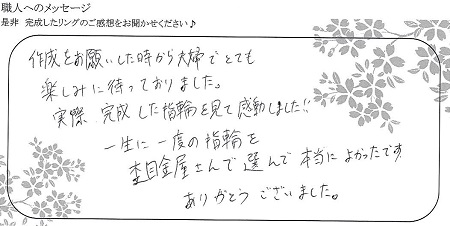 職人へのメッセージ
是非 完成したリングのご感想をお聞かせください♪
作成をお願いした時から夫婦でとても
楽しみに待っておりました。
実際、完成した指輪を見て感動しました!!
一生に一度の指輪を
杢目金屋さんで選んで本当によかったです
ありがとうございました。